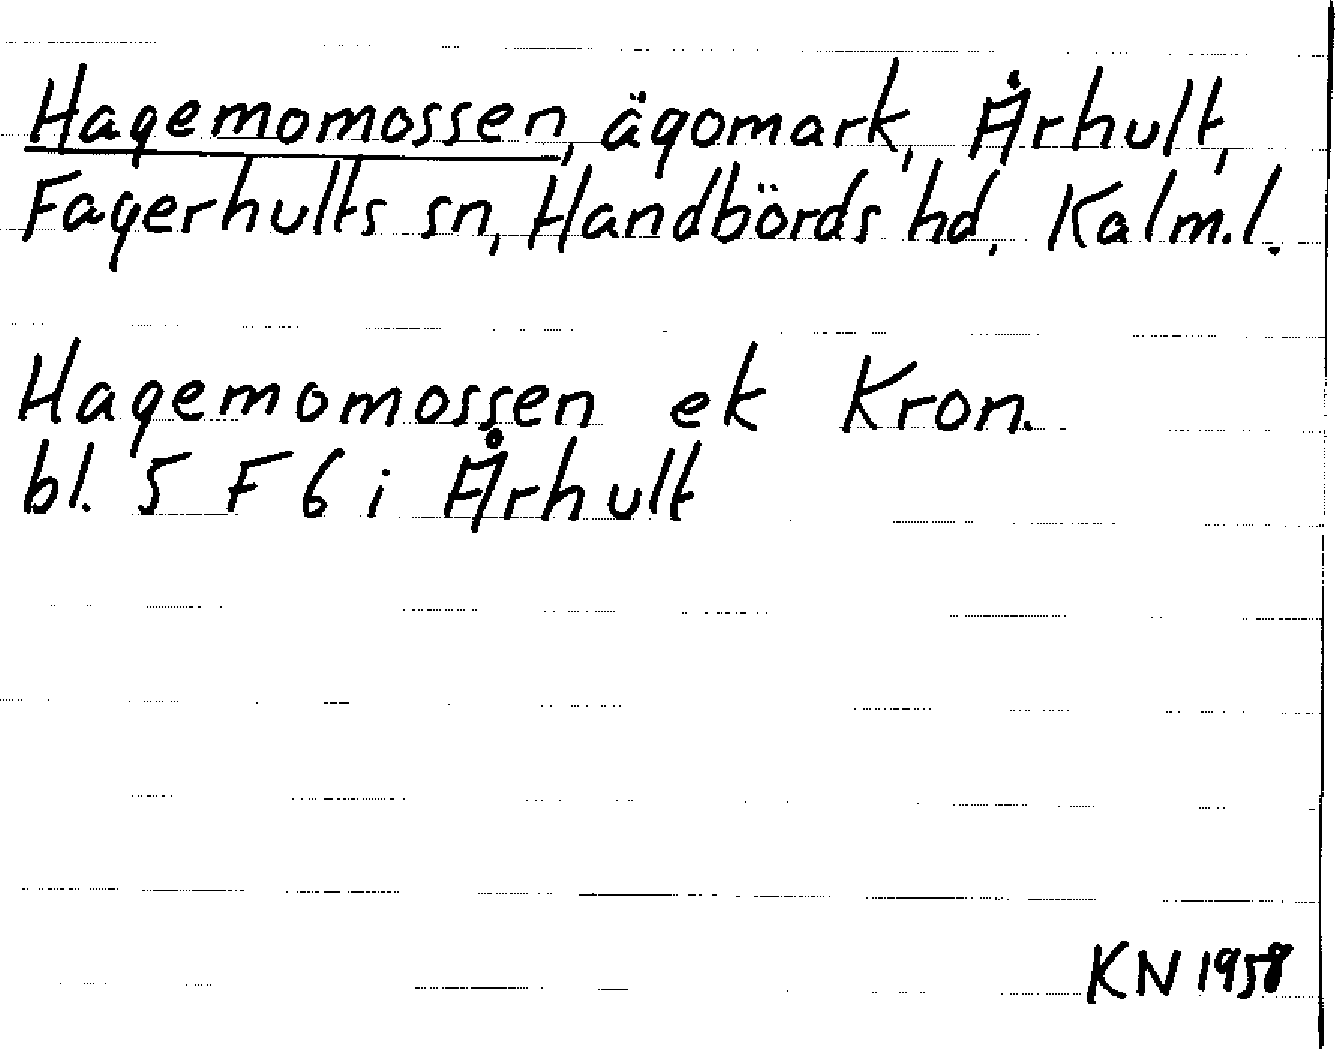 Hagemomossen, ägomark, Århult,
Fagerhults sn, Handbörds hd, Kalm.l.
Hagemomossen ek Kron.
bl. 5 F 6 i Århult
KN 1958